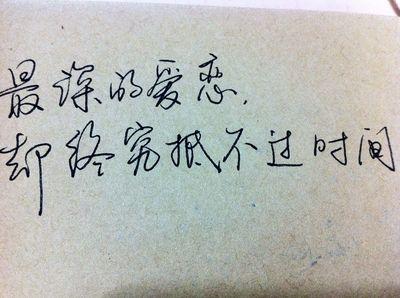 最深的爱恋，
却终究抵不过时间